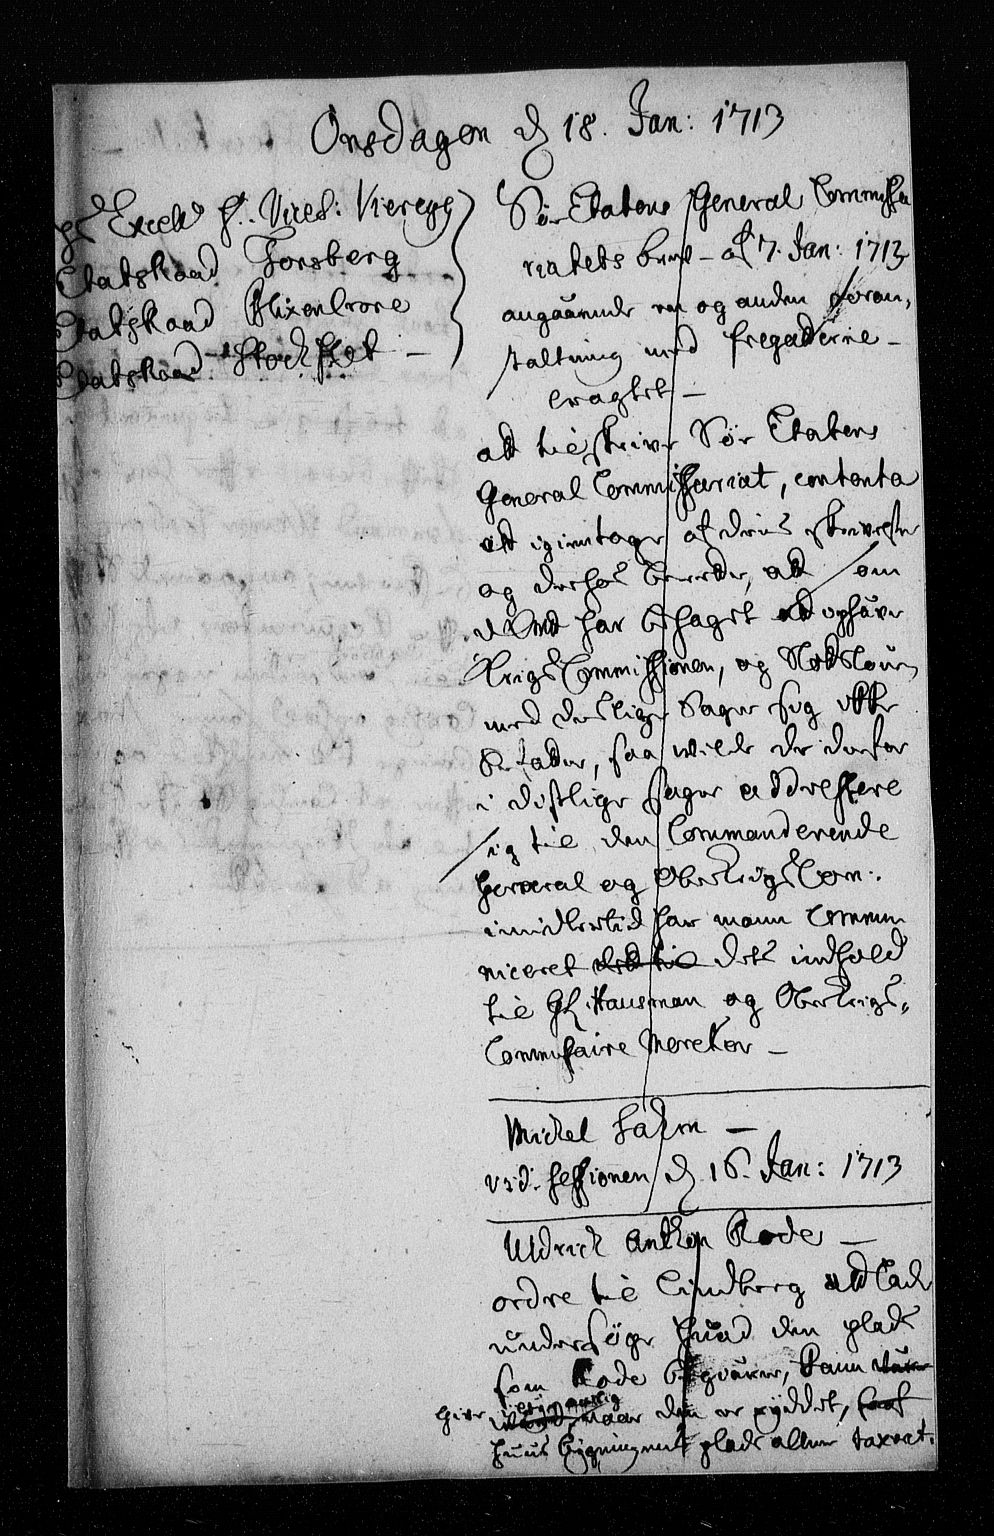 Onsdagen d 18. Jan: 1713
hs Excell: H. Vices: Vieregg
Etatsraad Tonsberg
Etatsraad Blixencrone
Etatsraad Stockflet -
Sør Etatens General Commissa
riatets brev - af 7. Jan: 1713
angaaende en og anden foran,
staltning med fregatterne -
eragtet -
att tilskrive Sør Etatens
General Commissariat, contenta
att igientage af deris skrivelse
og derhos berette, att som
d har behaget at ophæve
Krigs Commissionen, og Slotsloven
med deslige Sager sig ikke
befatter, saa wilde de derfor
i deslige sager addressere
sig til den Commanderende
General og OberKrigsCom:
imidlertid har mann commu
niceret dets indhold
til GL Hausman og OberKrigs,
Commissaire Moreton -
Michel -
vid. Sessionen d 16. Jan: 1713
Uldrich Anthon Rode -
ordre til Lindberg att lade
undersöge huad den plads
som Rode begiærer, kand
give naar den er ryddet,
huus bygningens plads allene taxeret.